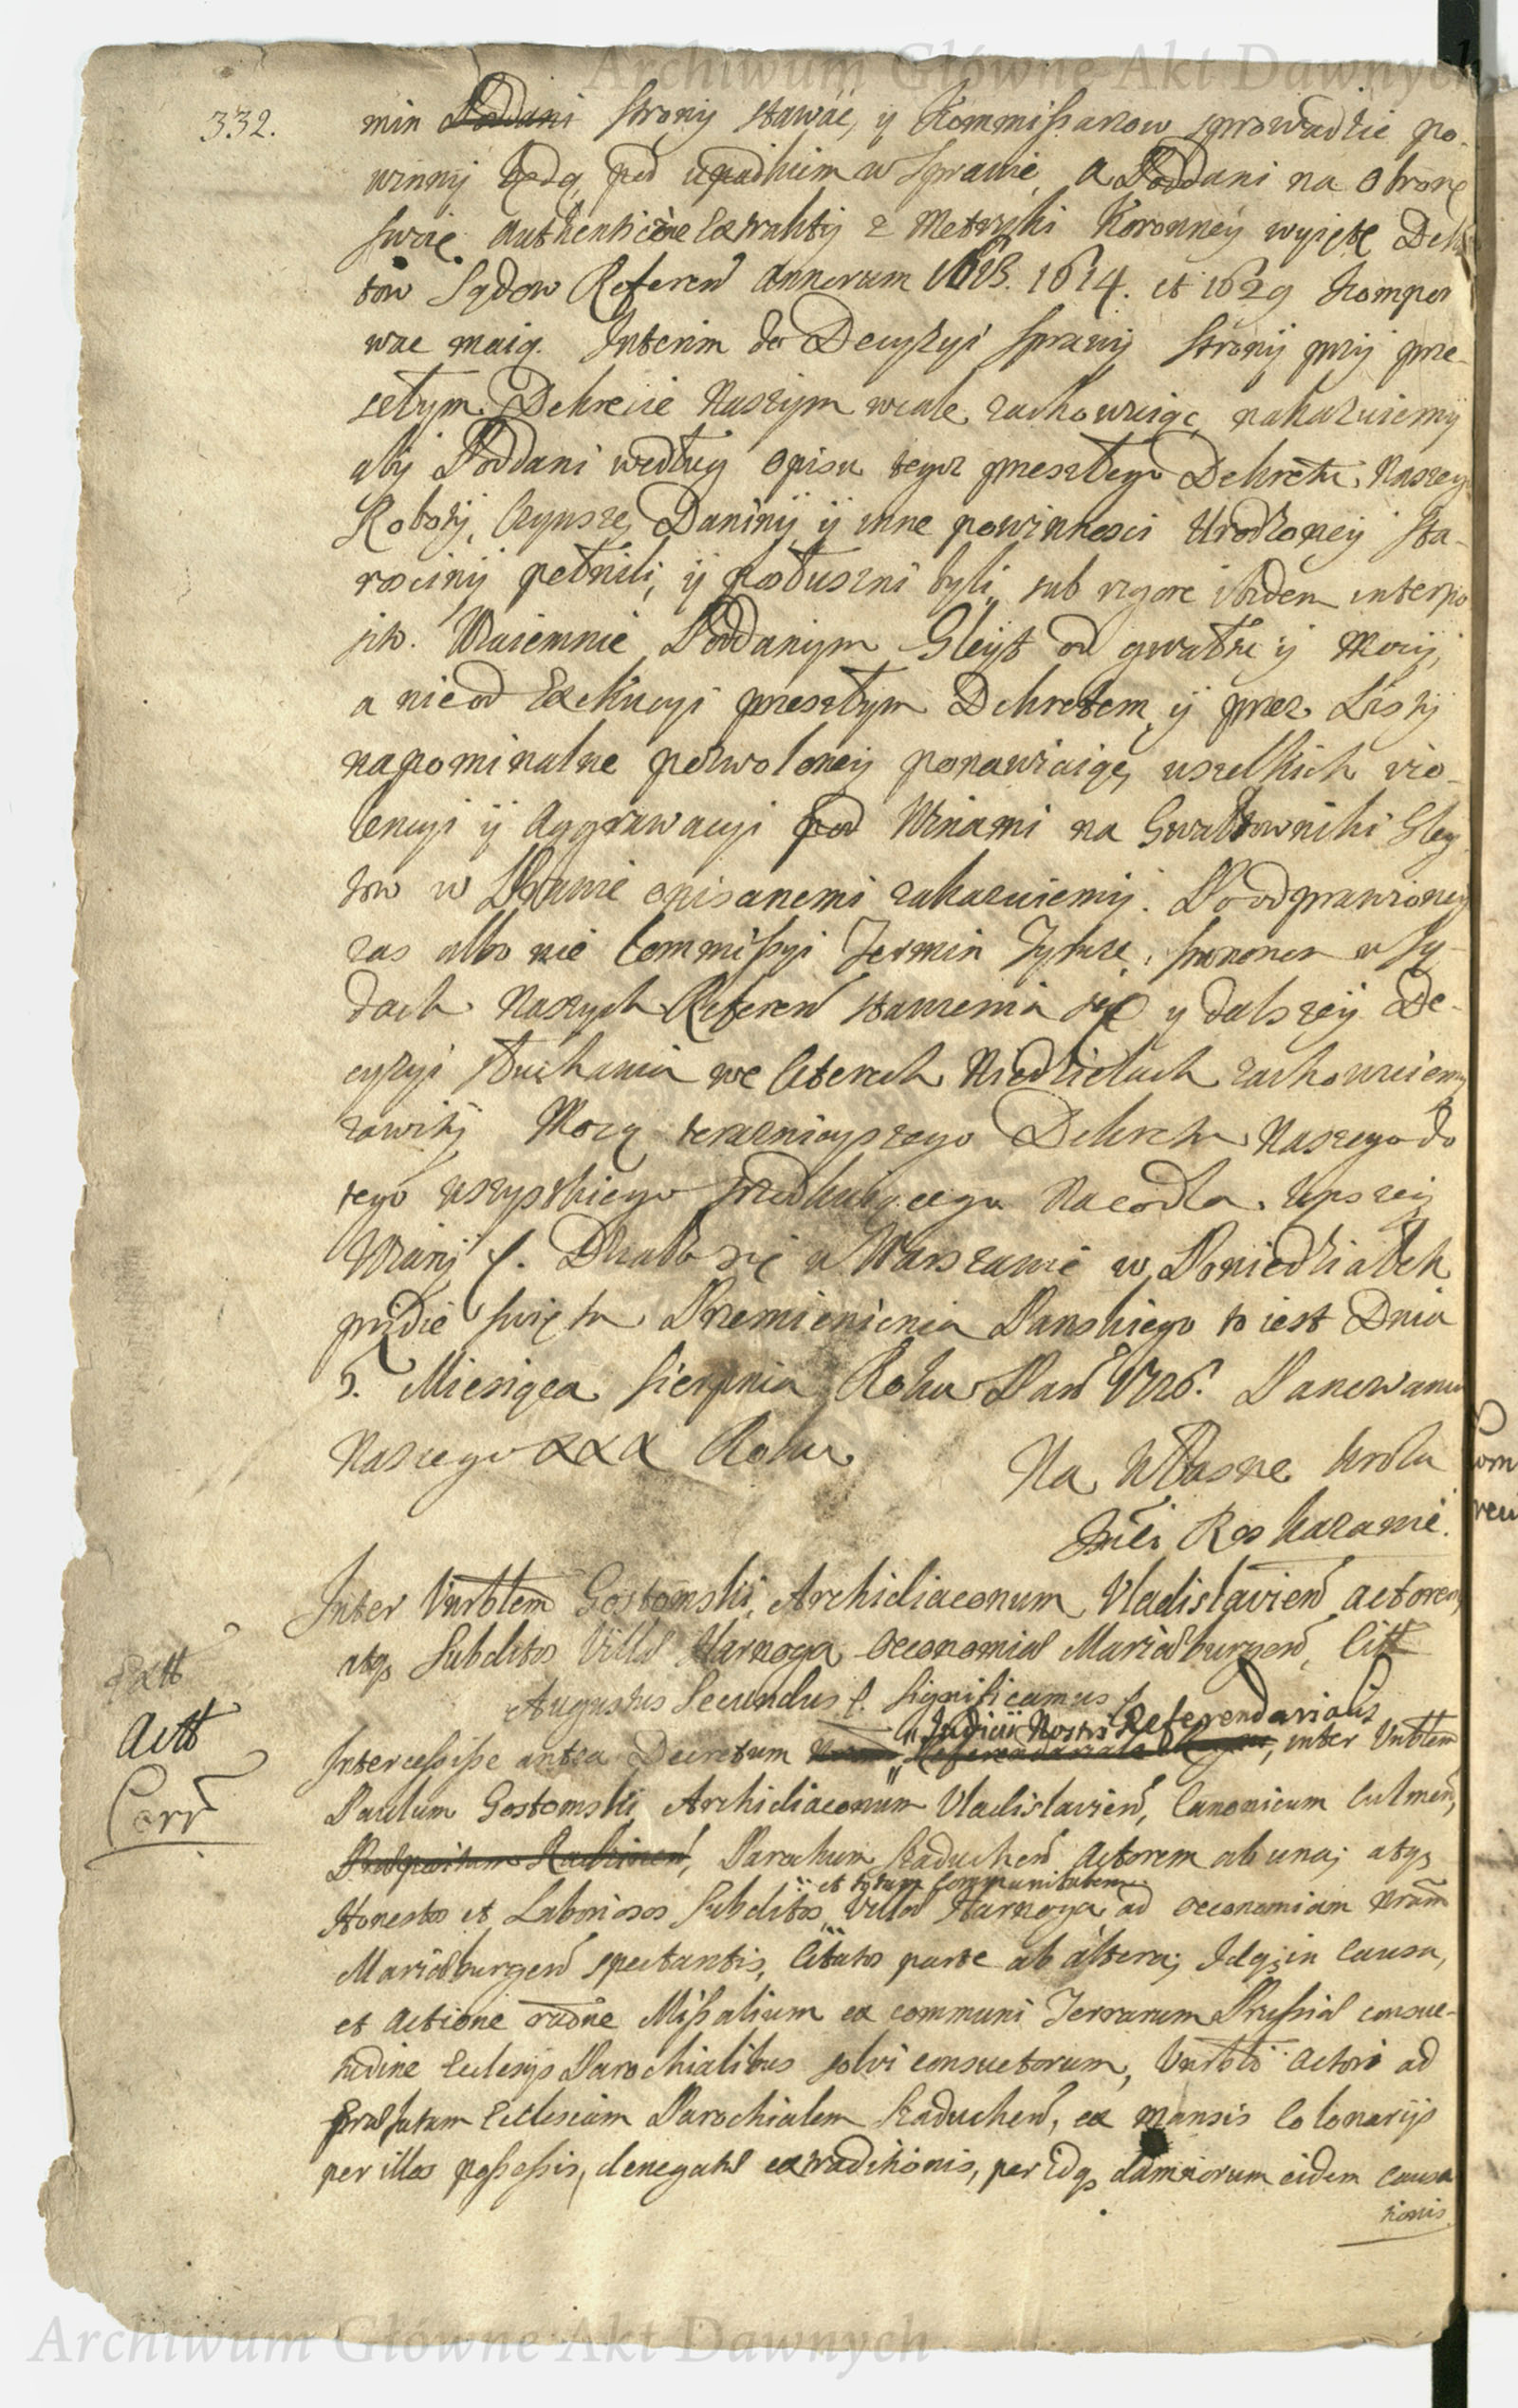 Archiwum Główne Akt Dawnych
332.
min Poddani Strony stawać, y Kommissarow sprowadzić po-
winny będą, pod upadkiem w Sprawie, a Poddani na obronę
swoię Authentyczne Extrakty z Metryki Koronney wyięte Dekre
tow Sądow Referen Annorum 1614. et 1629 komper
wac maią. Interim do Decyzyi Sprawy Strony przy prze-
szłym Dekrecie Naszym wcale zachowuiąc, nakazuiemy
aby Poddani według opisu tegoz przeszłego Dekretu Naszego
Roboty, Czynsze, Daniny, y inne powinnosci Urodzoney Sta-
rosciny pełnili, y posłuszni byli, sub rigore ibidem interpo
sito. Wzaiemnie Poddanym Gleyt od gwałtu y Mocy,
a nie od Exekucyi przeszłym Dekretem y przez Listy
napominalne pozwoloney ponawiaiąc, wszelkich vio-
lencyi y Aggrawacyi pod Winami na Gwałtowniki Gley
tow w Prawie opisanemi zakazuiemy. Po odprawioney
zas albo nie Commissyi Termin Tymze Stronom w Są-
dach Naszych Referen stawienia się y dalszey De-
cyzyi słuchania we czterech Niedzielach zachowuiemy
zawity Mocą teraznieyszego Dekretu Naszego do
tego wszystkiego Nacodla lepszey
Wiary f. Działo się w Warszawie w Poniedziałek
pridie Swięta Przemienienia Panskiego to iest Dnia
5. Miesiąca Sierpnia Roku Pan 1726. Panowania
Naszego XXX Roku
Na Własne Krola
Jmci Roskazanie.
Inter Vnrblem Gostomski, Archidiaconum Vladislavien Actorem
atq Subditos Villæ Starnoga Oeconomiæ Mariæburgen, Citt
Augustus Secundus f. Significamus f.
Extt
Actt
Corr
"Judicii Nostri Referendarialis
Intercessisse antea Decretum inter Vnrblem
Paulum Gostomski Archidiaconum Vladislavien, Canonicum Culmen,
Parochum Kaduchen Actorem ab una; atq
et totam Communitatem
Honestos et Laboriosos Subditos Villæ Starnoga ad Oeconomiam Nram
Mariæburgen spectantis, Citatos parte ab altera; Idq in Causa,
et Actione raone Missalium ex communi Terrarum Prussiæ consue-
tudine Ecclesijs Parochialibus solvi consuetorum, Vnrbli Actori ad
præfatam Ecclesiam Parochialem Kaduchen, ex mansis Colonarijs
per illos possessis, denegatæ extraditionis, per Idq damnorum eidem causa
tionis
Archiwum Główne Akt Dawnych